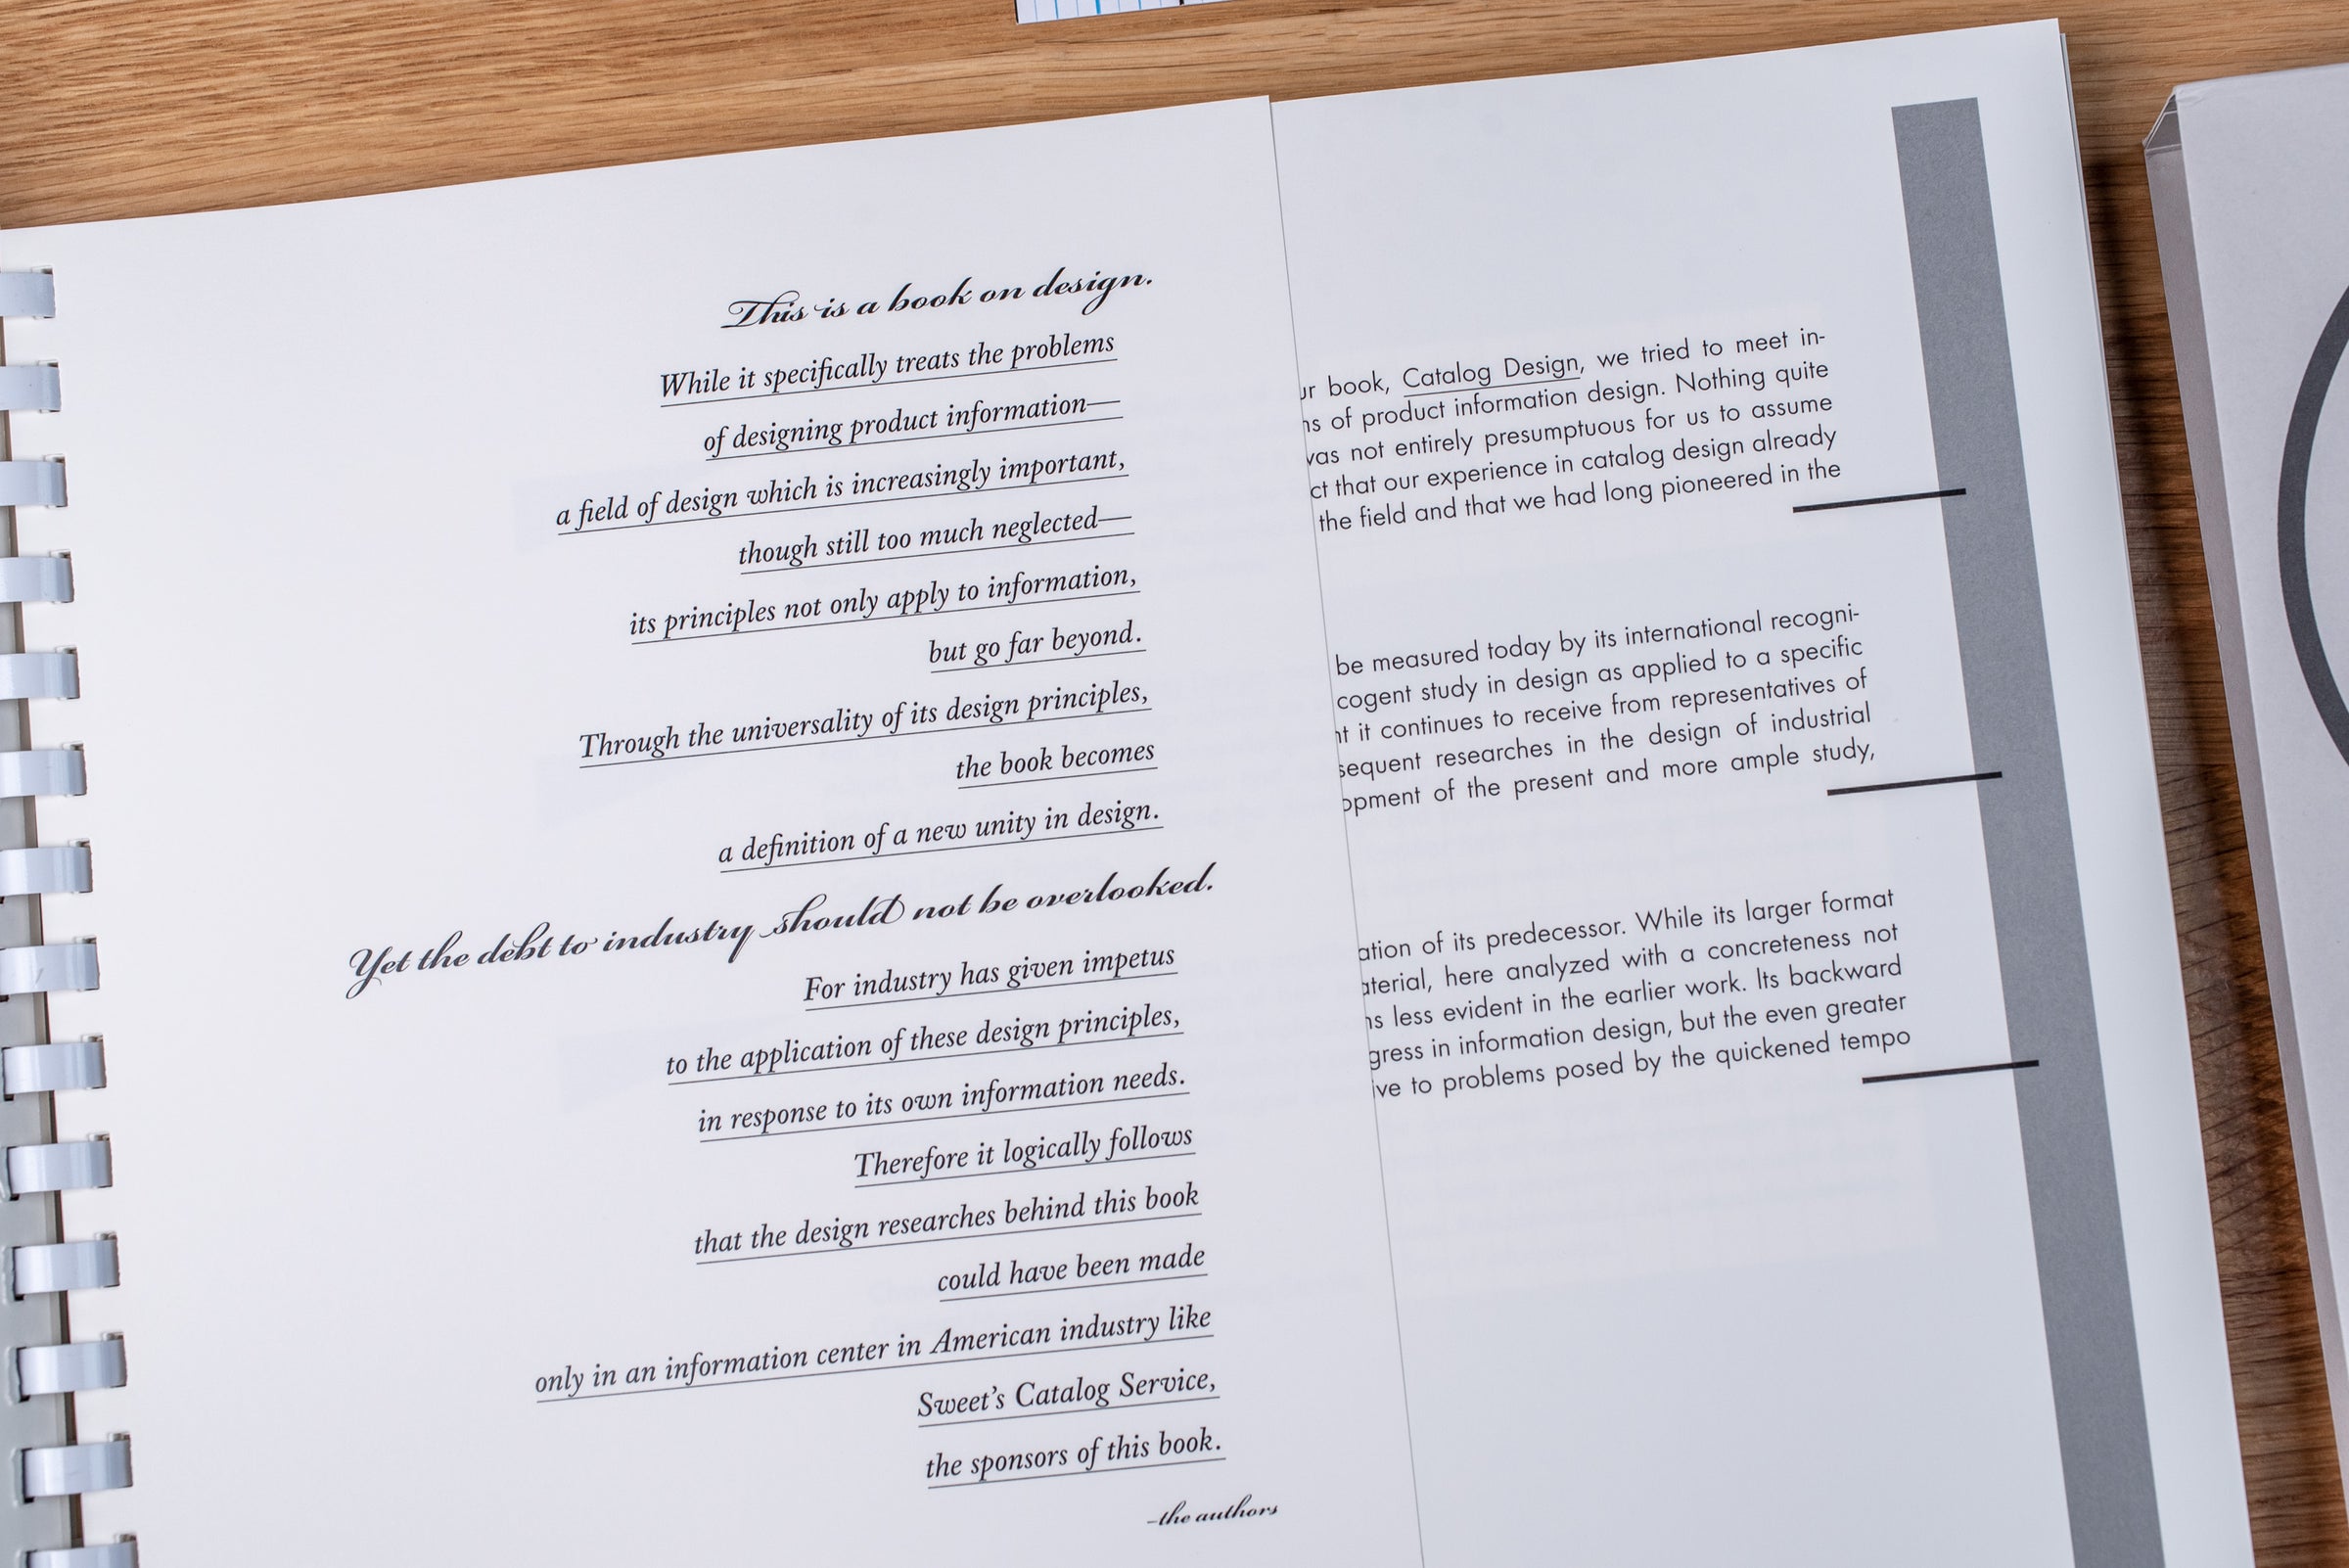 This is a book on design.
While it specifically treats the problems
of designing product information—
a field of design which is increasingly important,
though still too much neglected—
its principles not only apply to information,
but go far beyond.
Through the universality of its design principles,
the book becomes
a definition of a new unity in design.
Yet the debt to industry should not be overlooked.
For industry has given impetus
to the application of these design principles,
in response to its own information needs.
Therefore it logically follows
that the design researches behind this book
could have been made
only in an information center in American industry like
Sweet's Catalog Service,
the sponsors of this book.
–the authors
book, Catalog Design, we tried to meet in-
of product information design. Nothing quite
not entirely presumptuous for us to assume
that our experience in catalog design already
the field and that we had long pioneered in the
be measured today by its international recogni-
cogent study in design as applied to a specific
it continues to receive from representatives of
sequent researches in the design of industrial
opment of the present and more ample study,
ation of its predecessor. While its larger format
aterial, here analyzed with a concreteness not
less evident in the earlier work. Its backward
gress in information design, but the even greater
ive to problems posed by the quickened tempo